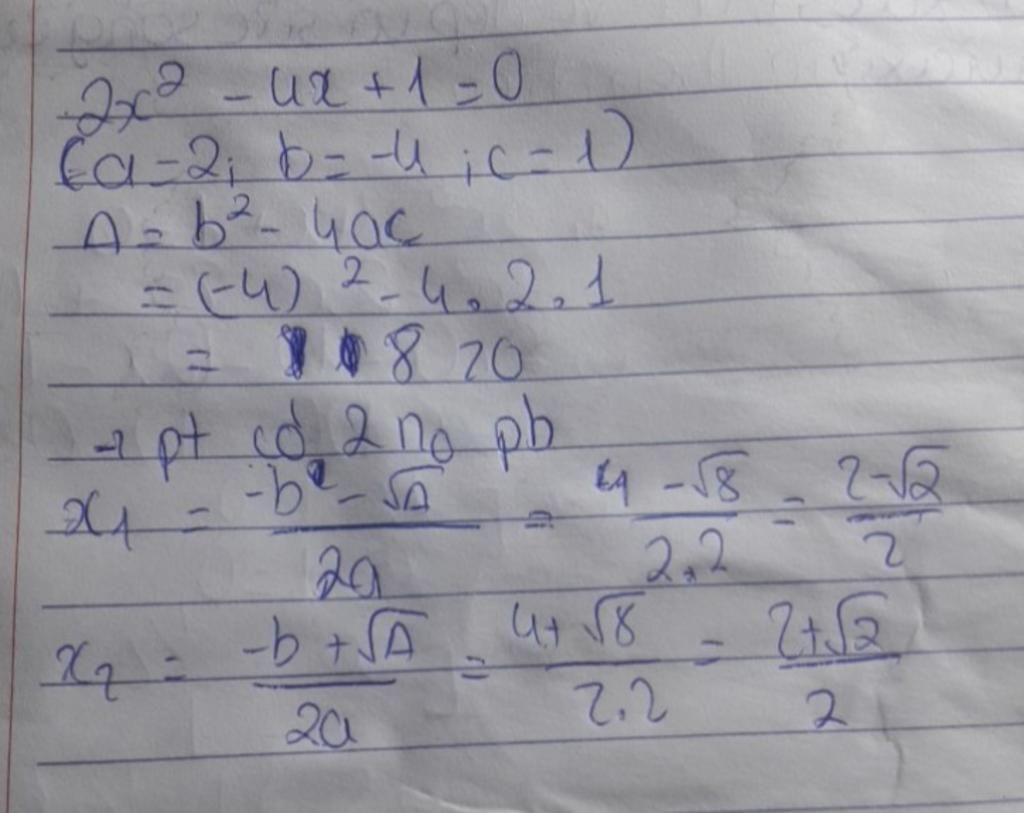 2x² - 4x + 1 = 0
(a = 2; b = -4; c = 1)
Δ = b² - 4ac
= (-4)² - 4.2.1
= 8 > 0
→ pt có 2 no pb
x₁ = (-b - √Δ)/2a = (4 - √8)/2.2 = (2 - √2)/2
x₂ = (-b + √Δ)/2a = (4 + √8)/2.2 = (2 + √2)/2